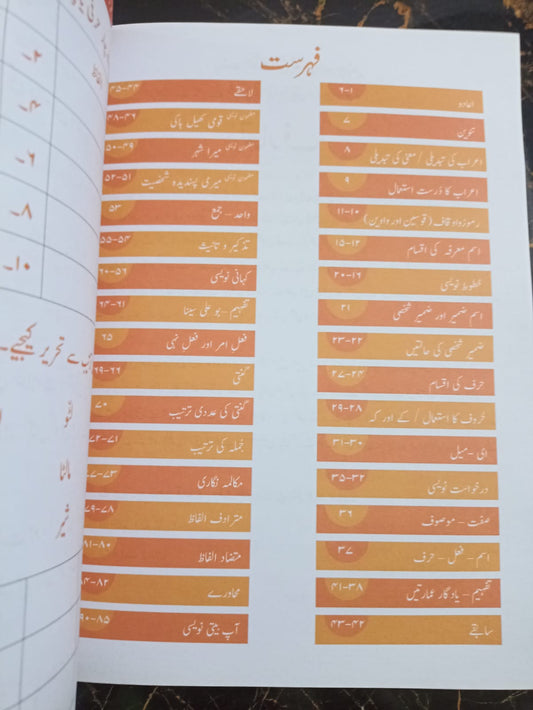 فہرست
اعادہ ۱-۶
تنوین ۷
اعراب کی تبدیلی / معنی کی تبدیلی ۸
اعراب کا درست استعمال ۹
رموزِ اوقاف (قوسین اور واوین) ۱۰-۱۱
اسم معرفہ کی اقسام ۱۲-۱۵
خطوط نویسی ۱۶-۲۰
اسم ضمیر اور ضمیر شخصی ۲۱
ضمیر شخصی کی حالتیں ۲۲-۲۳
حرف کی اقسام ۲۴-۲۷
حُروف کا استعمال / کے اور کہ ۲۸-۲۹
ای-میل ۳۰-۳۱
درخواست نویسی ۳۲-۳۵
صفت - موصوف ۳۶
اسم - فعل - حرف ۳۷
تفہیم - یادگار عمارتیں ۳۸-۴۱
سابقے ۴۲-۴۳
لاحقے ۴۴-۴۵
مضمون نویسی قومی کھیل ہاکی ۴۶-۴۸
مضمون نویسی میرا شہر ۴۹-۵۰
مضمون نویسی میری پسندیدہ شخصیت ۵۱-۵۲
واحد - جمع ۵۳
تذکیر و تانیث ۵۴-۵۵
کہانی نویسی ۵۶-۶۰
تفہیم - بو علی سینا ۶۱-۶۴
فعل امر اور فعل نہی ۶۵
گنتی ۶۶-۶۹
گنتی کی عددی ترتیب ۷۰
جملہ کی ترتیب ۷۱-۷۲
مکالمہ نگاری ۷۳-۷۷
مترادف الفاظ ۷۸-۷۹
متضاد الفاظ ۸۰-۸۱
محاورے ۸۲-۸۴
آپ بیتی نویسی ۸۵-۹۰
۲۔
۴۔
۶۔
۸۔
۱۰۔
سے تحریر کیجیے۔
مالٹا
شیر